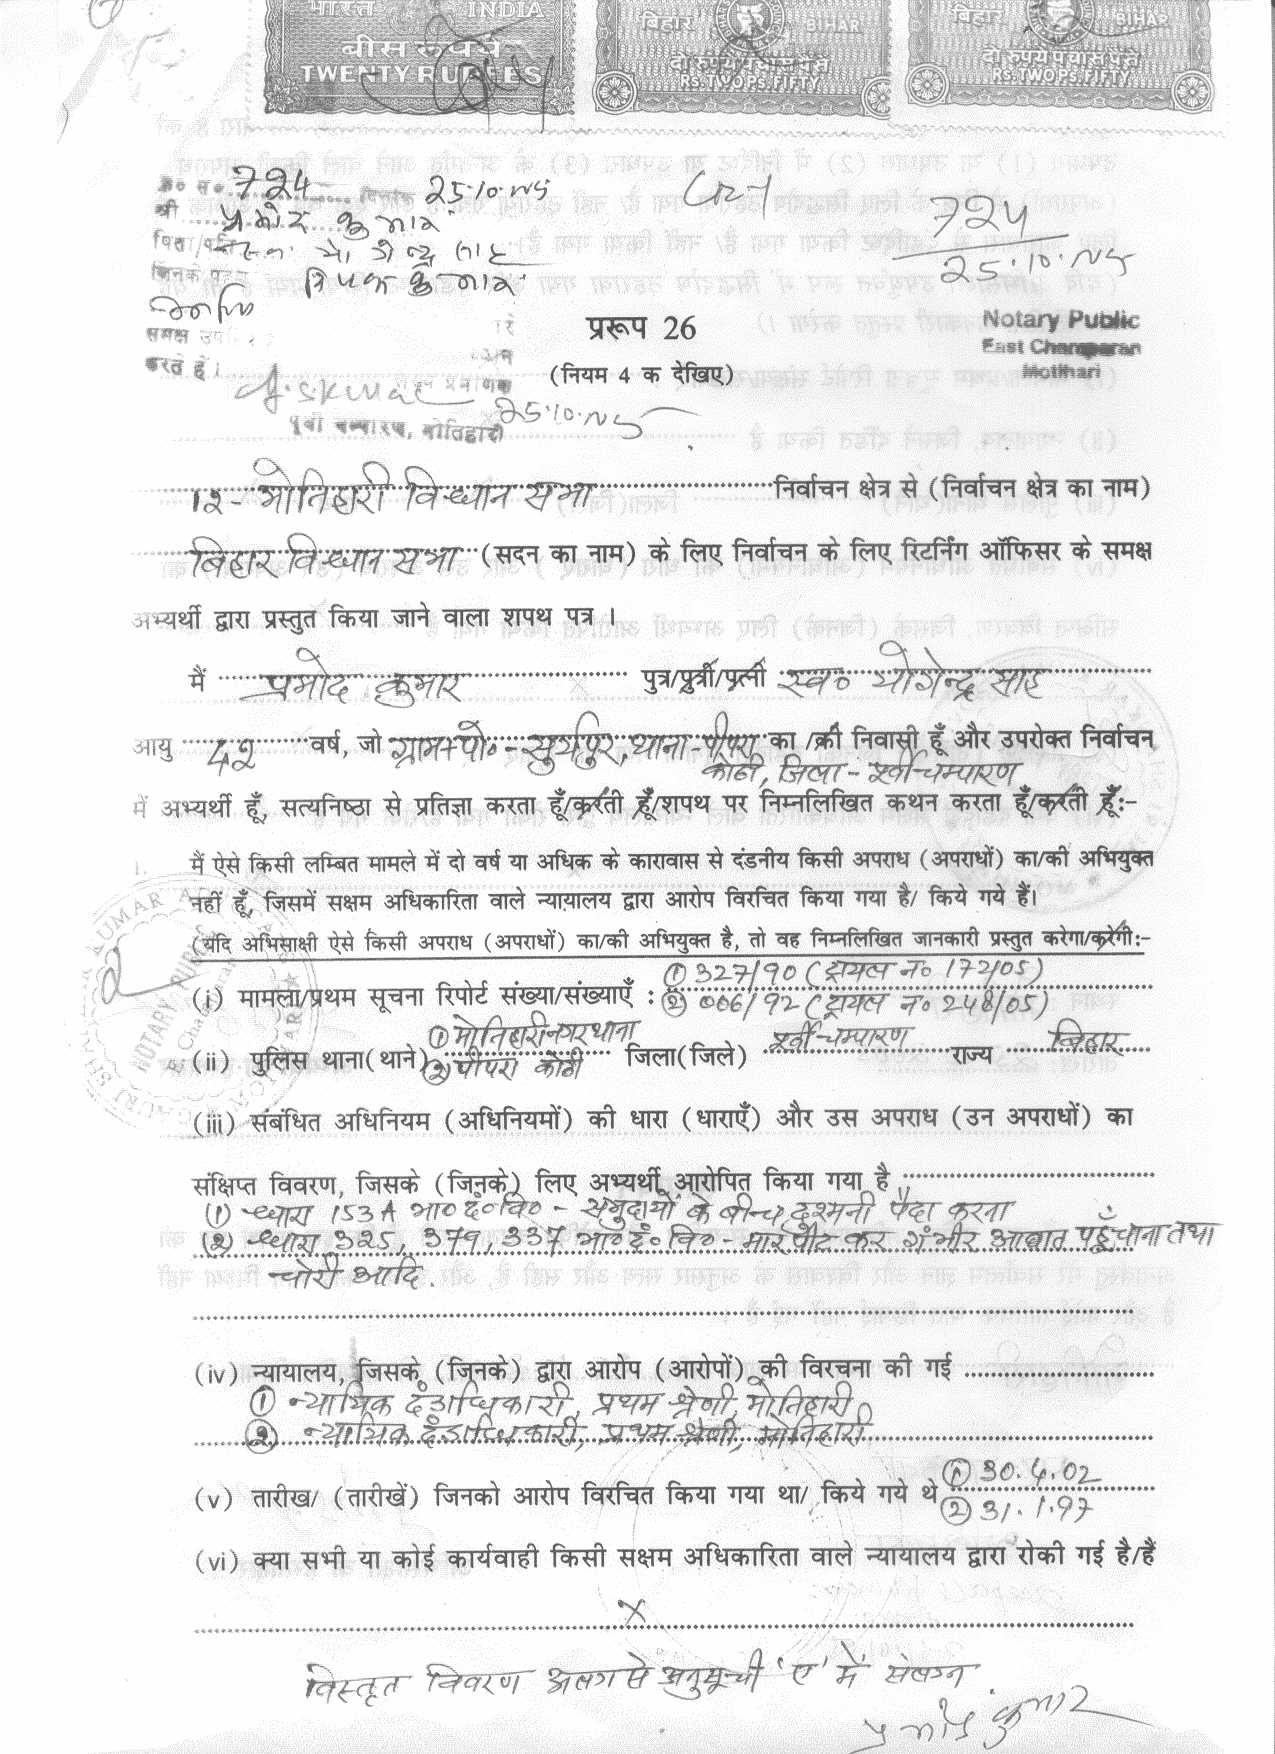 भारत INDIA
बीस रुपये
TWENTY RUPEES
बिहार BIHAR
दो रुपये पचास पैसे
RS. TWO PS. FIFTY
बिहार BIHAR
दो रुपये पचास पैसे
RS. TWO PS. FIFTY
724 दिनांक 25.10.05
श्री प्रमोद कुमार
724
25.10.05
प्ररूप 26
Notary Public
East Champaran
Motihari
(नियम 4 क देखिए)
समक्ष
करते हैं।
25.10.05
पूर्वी चम्पारण, मोतिहारी
12- मोतिहारी विधान सभा निर्वाचन क्षेत्र से (निर्वाचन क्षेत्र का नाम)
बिहार विधान सभा (सदन का नाम) के लिए निर्वाचन के लिए रिटर्निंग ऑफिसर के समक्ष
अभ्यर्थी द्वारा प्रस्तुत किया जाने वाला शपथ पत्र ।
मैं प्रमोद कुमार पुत्र/पुत्री/पत्नी स्व० योगेन्द्र साह
आयु 42 वर्ष, जो ग्राम+पो०-सुर्यपुर, थाना-पीपरा का /की निवासी हूँ और उपरोक्त निर्वाचन
कोठी, जिला - पूर्वी चम्पारण
में अभ्यर्थी हूँ, सत्यनिष्ठा से प्रतिज्ञा करता हूँ/करती हूँ/शपथ पर निम्नलिखित कथन करता हूँ/करती हूँ:-
1. मैं ऐसे किसी लम्बित मामले में दो वर्ष या अधिक के कारावास से दंडनीय किसी अपराध (अपराधों) का/की अभियुक्त
नहीं हूँ, जिसमें सक्षम अधिकारिता वाले न्यायालय द्वारा आरोप विरचित किया गया है/ किये गये हैं।
(यदि अभिसाक्षी ऐसे किसी अपराध (अपराधों) का/की अभियुक्त है, तो वह निम्नलिखित जानकारी प्रस्तुत करेगा/करेगी:-
① 327/90 (ट्रायल न० 172/05)
(i) मामला/प्रथम सूचना रिपोर्ट संख्या/संख्याएँ : ② 006/92 (ट्रायल न० 248/05)
① मोतिहारी नगर थाना
(ii) पुलिस थाना(थाने) ② पीपरा कोठी जिला(जिले) पूर्वी चम्पारण राज्य बिहार
(iii) संबंधित अधिनियम (अधिनियमों) की धारा (धाराएँ) और उस अपराध (उन अपराधों) का
संक्षिप्त विवरण, जिसके (जिनके) लिए अभ्यर्थी आरोपित किया गया है
(1) धारा 153A भा० दं० वि० - समुदायों के बीच दुश्मनी पैदा करना
(2) धारा 325, 379, 337 भा० दं० वि०- मारपीट कर गंभीर आघात पहुँचाना तथा
चोरी आदि.
(iv) न्यायालय, जिसके (जिनके) द्वारा आरोप (आरोपों) की विरचना की गई
① न्यायिक दंडाधिकारी, प्रथम श्रेणी, मोतिहारी
② न्यायिक दंडाधिकारी, प्रथम श्रेणी, मोतिहारी
(v) तारीख/ (तारीखें) जिनको आरोप विरचित किया गया था/ किये गये थे ① 30.4.02
② 31.1.97
(vi) क्या सभी या कोई कार्यवाही किसी सक्षम अधिकारिता वाले न्यायालय द्वारा रोकी गई है/हैं
X
विस्तृत विवरण अलग से अनुसूची 'ए' में संलग्न
प्रमोद कुमार